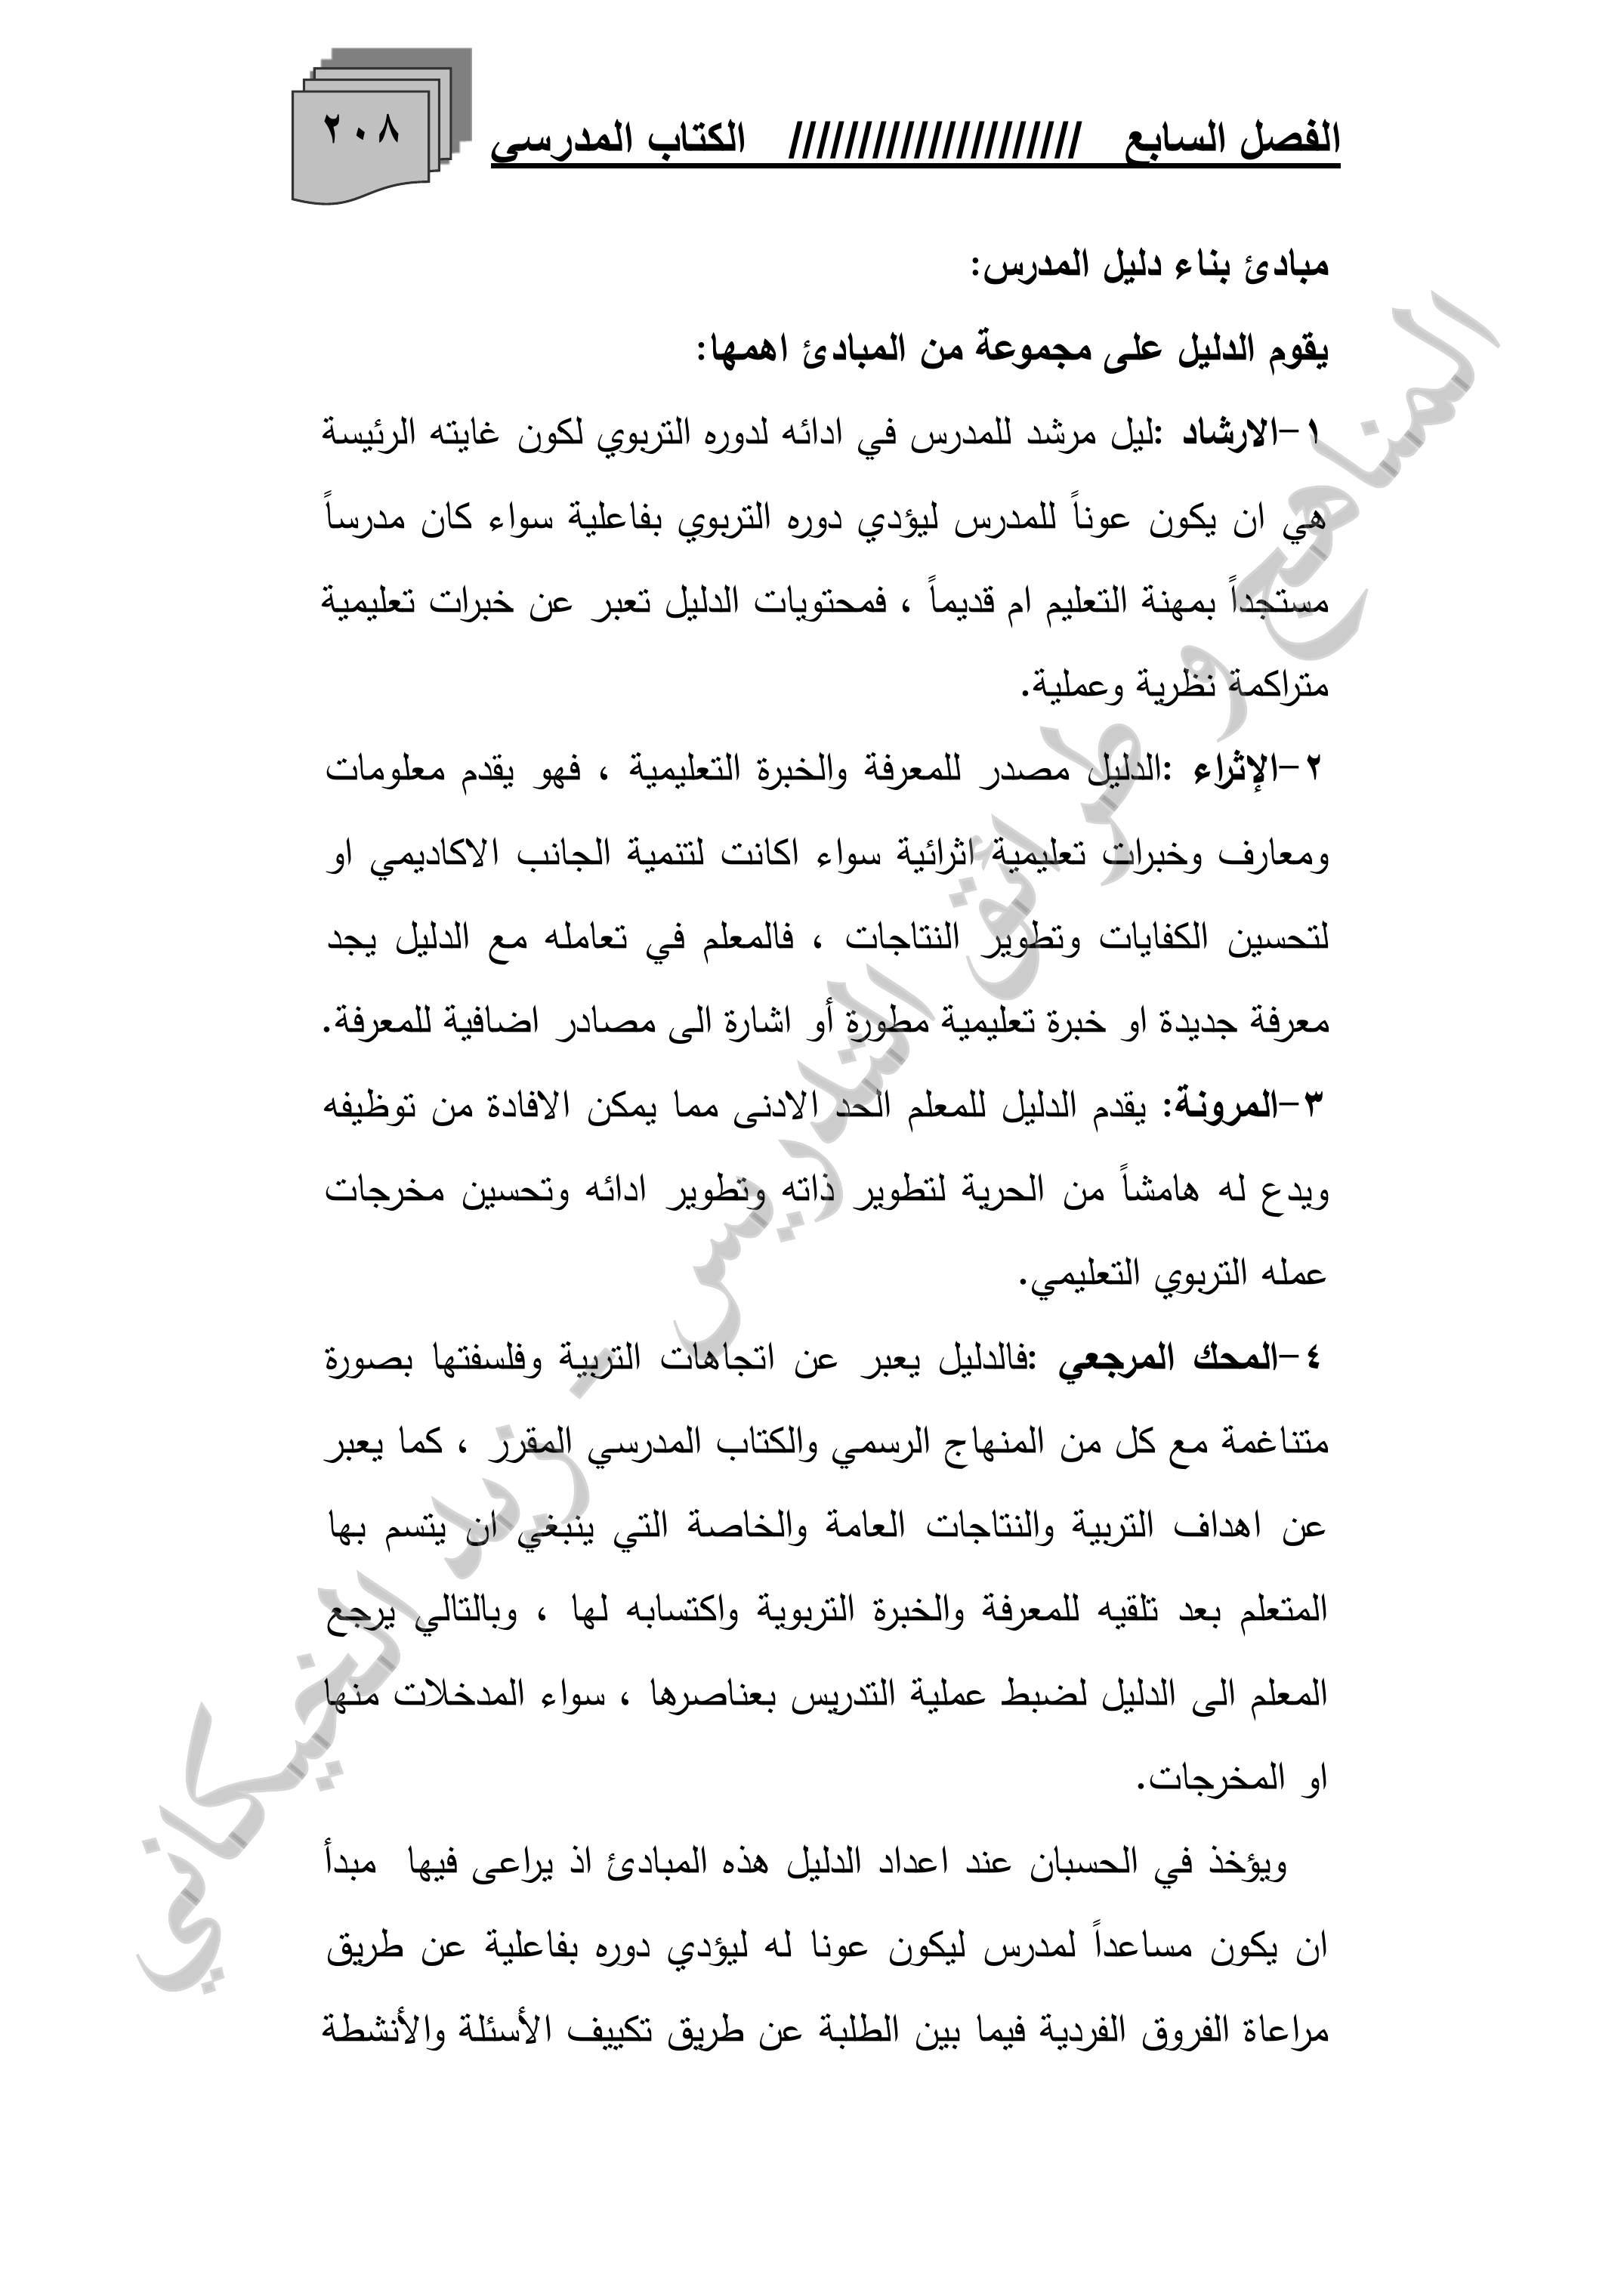 الفصل السابع ///////////////////// الكتاب المدرسي
٢٠٨
مبادئ بناء دليل المدرس:
يقوم الدليل على مجموعة من المبادئ اهمها:
١-الارشاد :ليل مرشد للمدرس في ادائه لدوره التربوي لكون غايته الرئيسة
هي ان يكون عوناً للمدرس ليؤدي دوره التربوي بفاعلية سواء كان مدرساً
مستجداً بمهنة التعليم ام قديماً ، فمحتويات الدليل تعبر عن خبرات تعليمية
متراكمة نظرية وعملية.
٢-الإثراء :الدليل مصدر للمعرفة والخبرة التعليمية ، فهو يقدم معلومات
ومعارف وخبرات تعليمية اثرائية سواء اكانت لتنمية الجانب الاكاديمي او
لتحسين الكفايات وتطوير النتاجات ، فالمعلم في تعامله مع الدليل يجد
معرفة جديدة او خبرة تعليمية مطورة أو اشارة الى مصادر اضافية للمعرفة.
٣-المرونة: يقدم الدليل للمعلم الحد الادنى مما يمكن الافادة من توظيفه
ويدع له هامشاً من الحرية لتطوير ذاته وتطوير ادائه وتحسين مخرجات
عمله التربوي التعليمي.
٤-المحك المرجعي :فالدليل يعبر عن اتجاهات التربية وفلسفتها بصورة
متناغمة مع كل من المنهاج الرسمي والكتاب المدرسي المقرر ، كما يعبر
عن اهداف التربية والنتاجات العامة والخاصة التي ينبغي ان يتسم بها
المتعلم بعد تلقيه للمعرفة والخبرة التربوية واكتسابه لها ، وبالتالي يرجع
المعلم الى الدليل لضبط عملية التدريس بعناصرها ، سواء المدخلات منها
او المخرجات.
ويؤخذ في الحسبان عند اعداد الدليل هذه المبادئ اذ يراعى فيها مبدأ
ان يكون مساعداً لمدرس ليكون عونا له ليؤدي دوره بفاعلية عن طريق
مراعاة الفروق الفردية فيما بين الطلبة عن طريق تكييف الأسئلة والأنشطة
المناهج و طرائق التدريس - زيد الخيكاني